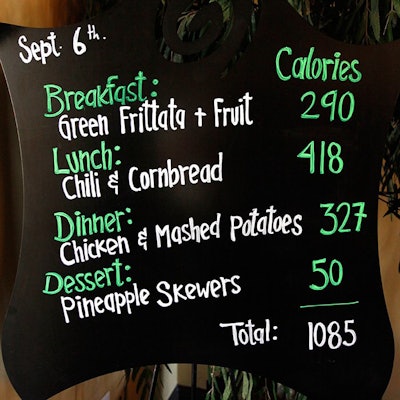 Sept. 6th.
Calories
Breakfast:
Green Frittata + Fruit 290
Lunch:
Chili & Cornbread 418
Dinner:
Chicken & Mashed Potatoes 327
Dessert:
Pineapple Skewers 50
Total: 1085